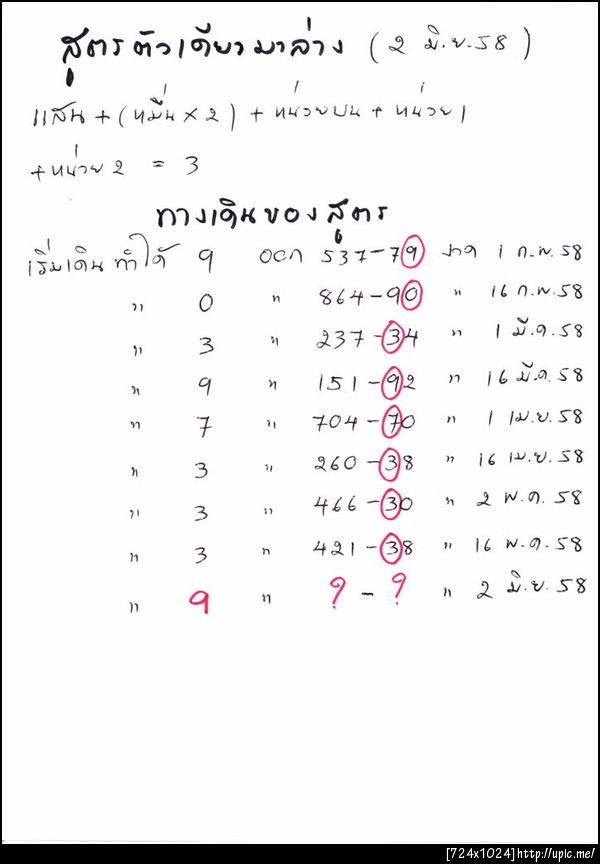 สูตรตัวเดียวมาล่าง (2 มิ.ย.58)
แสน + (หมื่น × 2) + หน่วยบน + หน่วย 1
+ หน่วย 2 = 3
ทางเดินของสูตร
เริ่มเดิน ทำได้ 9 ออก 537-79 งวด 1 ก.พ.58
" 0 " 864-90 " 16 ก.พ.58
" 3 " 237-34 " 1 มี.ค.58
" 9 " 151-92 " 16 มี.ค.58
" 7 " 704-70 " 1 เม.ย.58
" 3 " 260-38 " 16 เม.ย.58
" 3 " 466-30 " 2 พ.ค.58
" 3 " 421-38 " 16 พ.ค.58
" 9 " ?-? " 2 มิ.ย.58
[724x1024]http://upic.me/